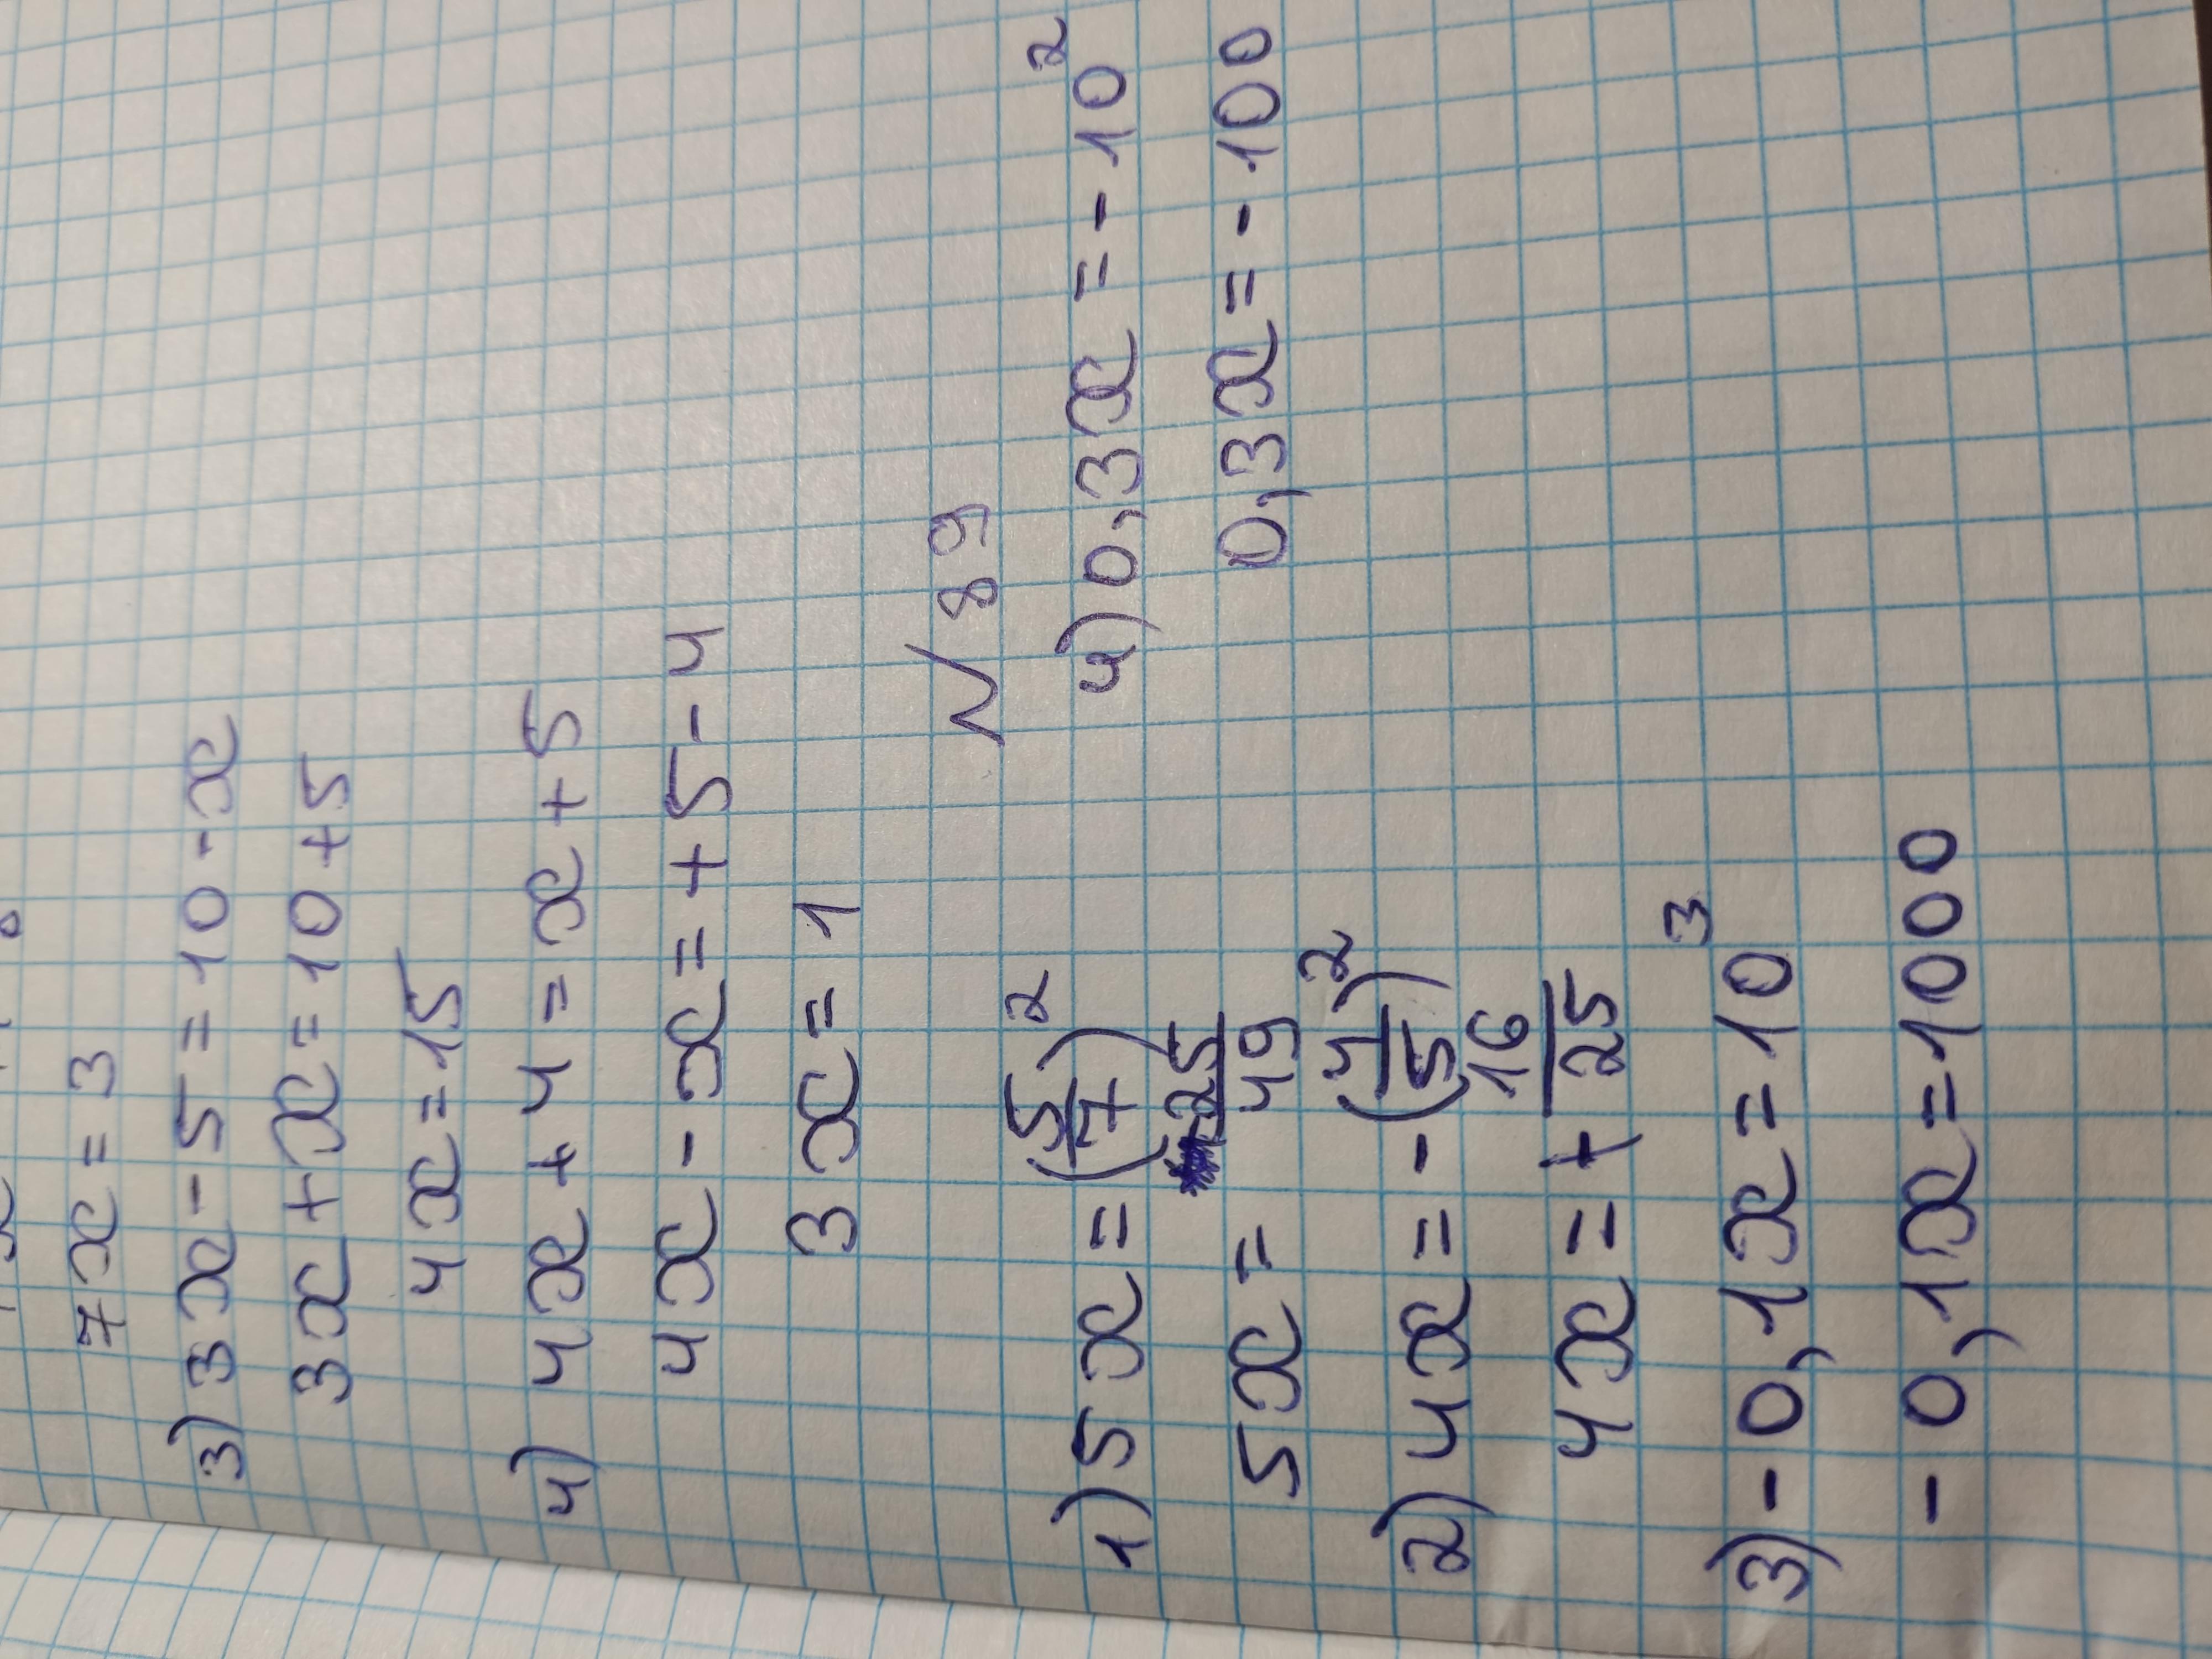 7x = 3
3) 3x - 5 = 10 - x
3x + x = 10 + 5
4x = 15
4) 4x + 4 = x + 5
4x - x = + 5 - 4
3x = 1
N 89
1) 5x = (5/7)²
5x = 25/49
2) 4x = - (4/5)²
4x = + 16/25
3) - 0,1x = 10³
- 0,1x = 1000
4) 0,3x = - 10²
0,3x = - 100